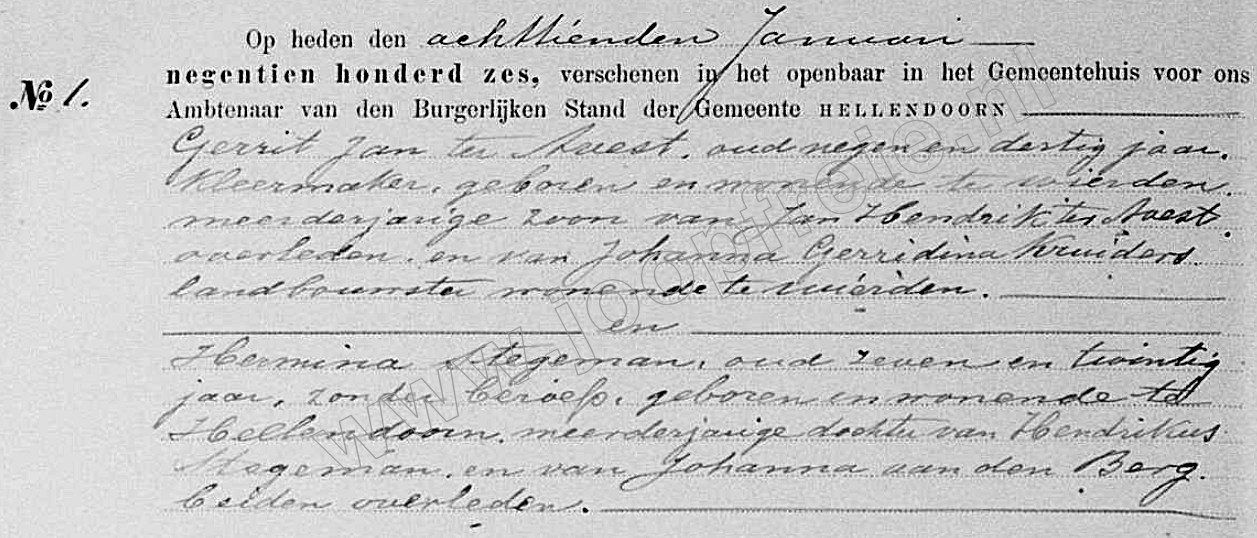 Op heden den achttienden Januari
No 1.
negentien honderd zes, verschenen in het openbaar in het Gemeentehuis voor ons
Ambtenaar van den Burgerlijken Stand der Gemeente HELLENDOORN
Gerrit Jan ter Avest, oud negen en dertig jaar,
kleermaker, geboren en wonende te Wierden,
meerderjarige zoon van Jan Hendrik ter Avest,
overleden, en van Johanna Gerridina Kruiders
landbouwster wonende te Wierden.
en
Hermina Stegeman, oud zeven en twintig
jaar, zonder beroep, geboren en wonende te
Hellendoorn, meerderjarige dochter van Hendrikus
Stegeman, en van Johanna van den Berg,
beiden overleden.
www.joopfreie.nl